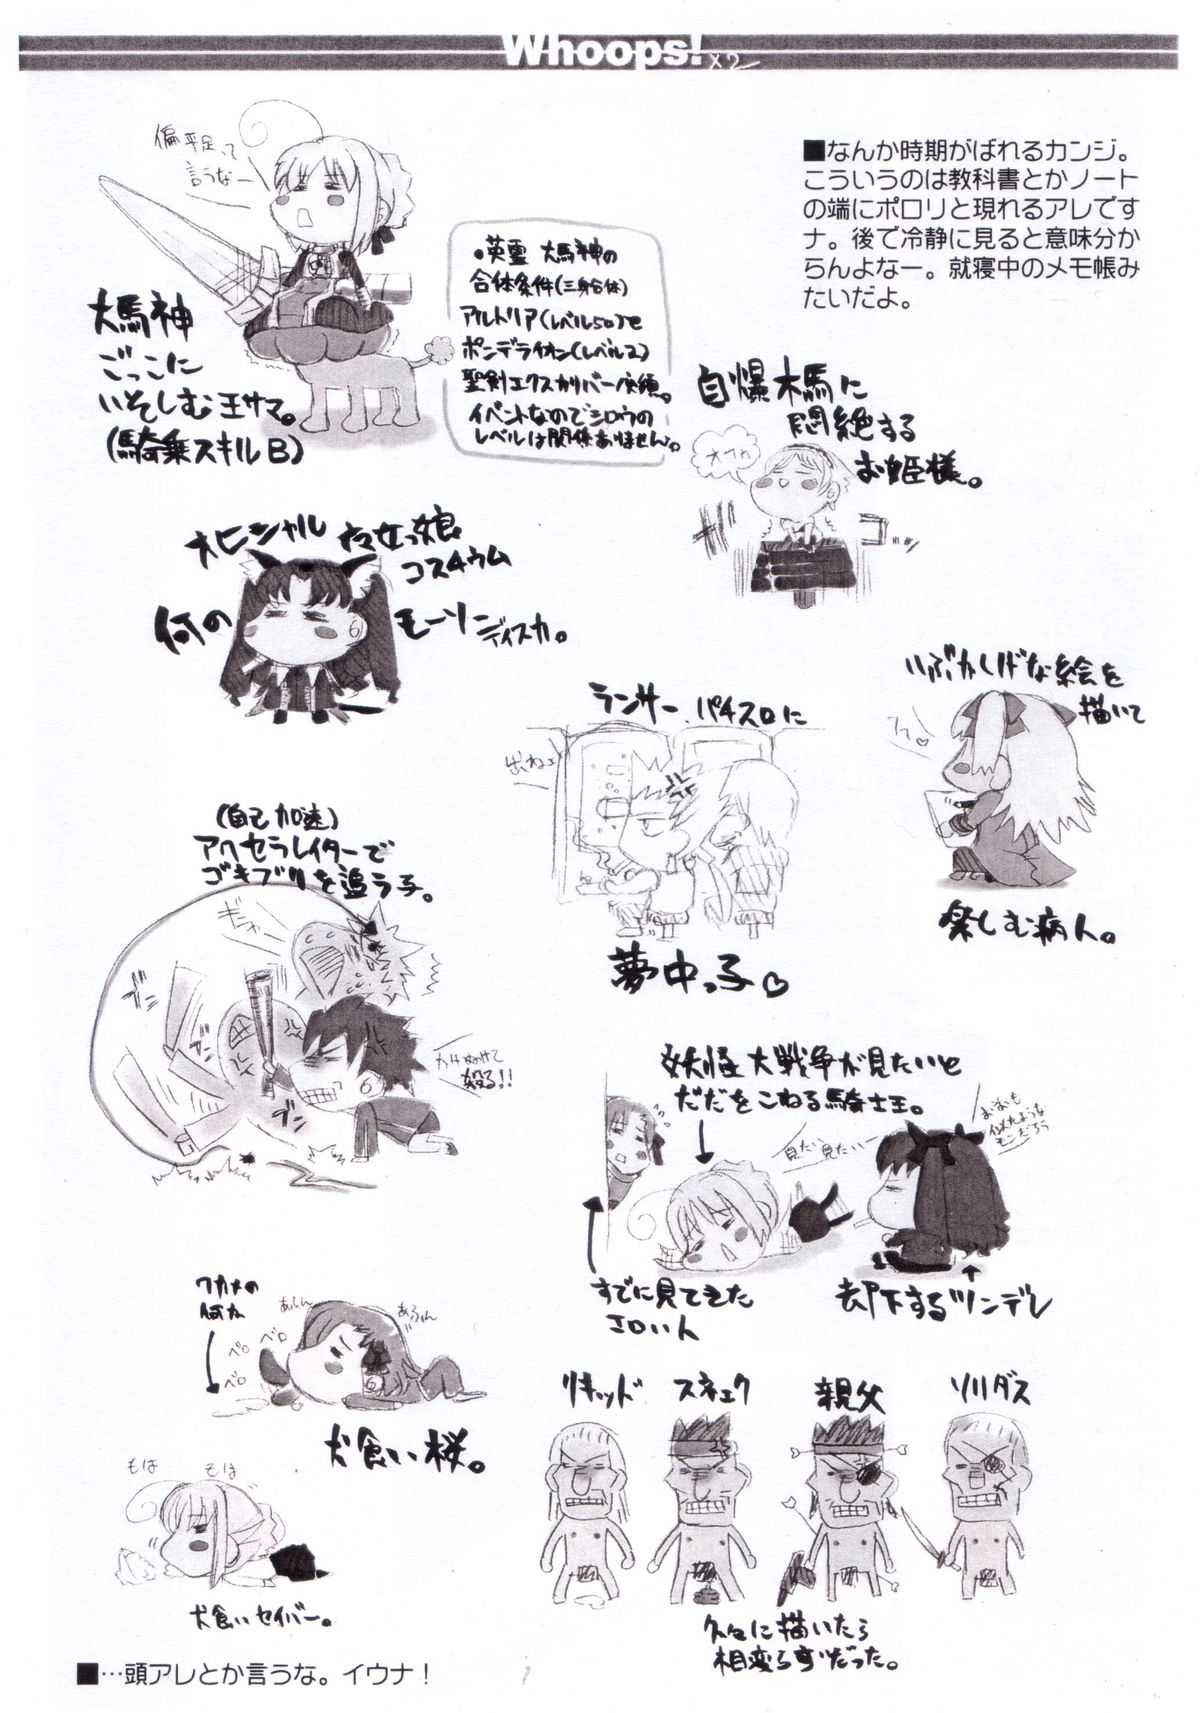 Whoops! ×2
■なんか時期がばれるカンジ。
こういうのは教科書とかノート
の端にポロリと現れるアレです
ナ。後で冷静に見ると意味分か
らんよなー。就寝中のメモ帳み
たいだよ。
偏平足って
言うなー
大馬神
ごっこに
いそしむ王サマ。
(騎乗スキルB)
。英霊 大馬神の
合体条件(三身合体)
アルトリア(レベル50)と
ポンデライオン(レベル2)
聖剣エクスカリバー実績。
イベントなのでシロウの
レベルは関係ありません。
自爆木馬に
悶絶する
お姫様。
オヒシャル
コスチウム
何の
モーソー
ディスカ。
ランサー パチスロに
出ねェ
夢中っ子♡
いぶかしげな絵を
描いて
楽しむ病人。
(自己加速)
アクセラレイターで
ゴキブリを追う子。
殺る!!
妖怪大戦争が見たいと
だだをこねる騎士王。
見たい見たいー
すでに見てきた
エロい人
却下するツンデレ
ワカメの
何か
ペロ
ベロ
ベロ
犬食い桜。
もは もは
犬食いセイバー。
リキッド
スネェク
親父
ソリダス
久々に描いたら
相変らずだった。
■…頭アレとか言うな。イウナ！